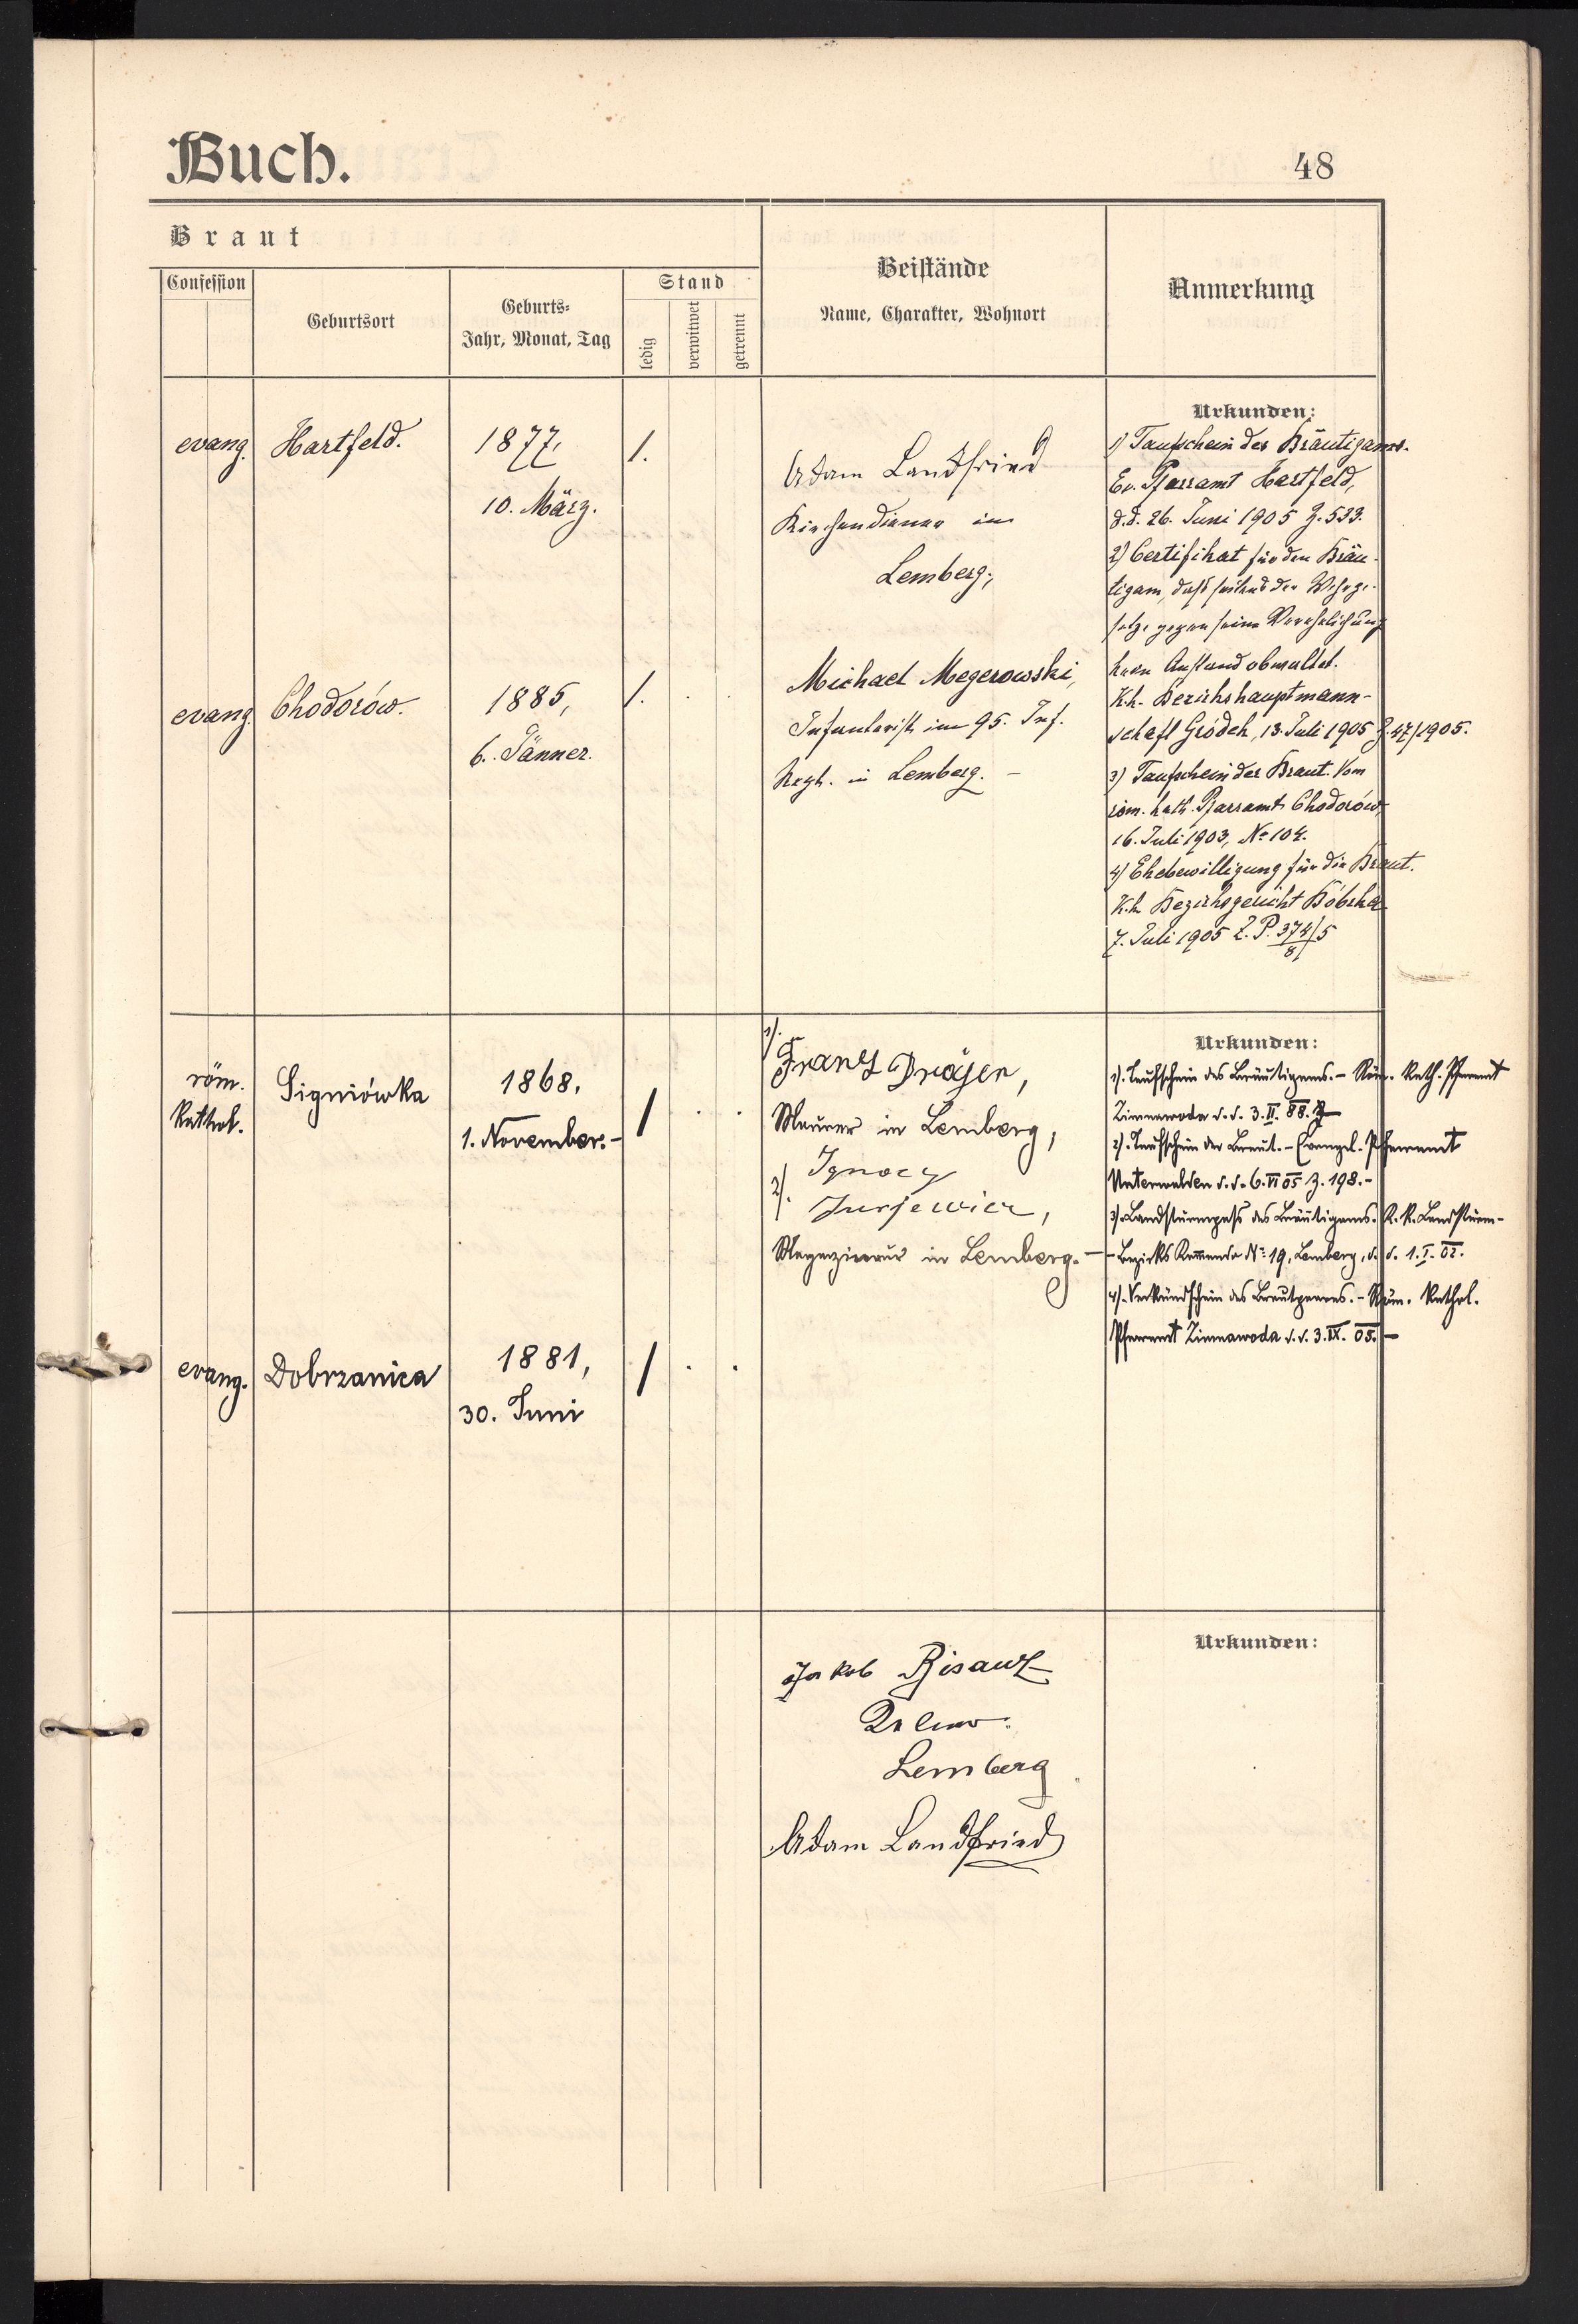 Buch.
48
Braut
Confession
Geburtsort
Geburts-
Jahr, Monat, Tag
Stand
ledig
verwitwet
getrennt
Beistände
Name, Charakter, Wohnort
Anmerkung
evang. Hartfeld. 1877, 1.
10. März.
Adam Landfried
Kirchendiener in
Lemberg;
evang. Chodorów. 1885, 1.
6. Jänner.
Michael Megerowski,
Infanterist im 95. Inf.
Regt. in Lemberg. –
Urkunden:
1) Taufschein des Bräutigams.
Ev. Pfarramt Hartfeld,
d.d. 26. Juni 1905 Z. 533.
2) Certifikat für den Bräu-
tigam, daß seitens der Wehrge-
setze gegen seine Verehelichung
kein Anstand obwaltet.
K.k. Bezirkshauptmann-
schaft Gródek, 13. Juli 1905 Z. 47/1905.
3) Taufschein der Braut. Vom
röm. kath. Pfarramt Chodorów,
16. Juli 1903, № 104.
4) Ehebewilligung für die Braut.
K.k. Bezirksgericht Bóbrka
7. Juli 1905 Z. P. 374/5
8
röm. Kathol. Signiówka 1868, /
1. November. –
1). Franz Dräger,
Maurer in Lemberg,
2). Ignacy
Jurjewicz,
Magazineur in Lemberg. –
evang. Dobrzanica 1881, /
30. Juni
Urkunden:
1). Taufschein des Bräutigams. – Röm. Kath. Pfarramt
Zimnawoda d. d. 3. II. 88.
2). Taufschein der Braut. – Evangel. Pfarramt
Unterwalden d. d. 6. VI 05 Z. 198. –
3). Landsturmpass des Bräutigams. K. K. Landsturm-
- Bezirks Kommando № 19, Lemberg, d. d. 1. I. 02.
4). Verkündschein des Brautpaares. – Röm. Kathol.
Pfarramt Zimnawoda d. d. 3. IX. 05. –
Jakob Bisanz
Lemberg
Adam Landfried
Urkunden: